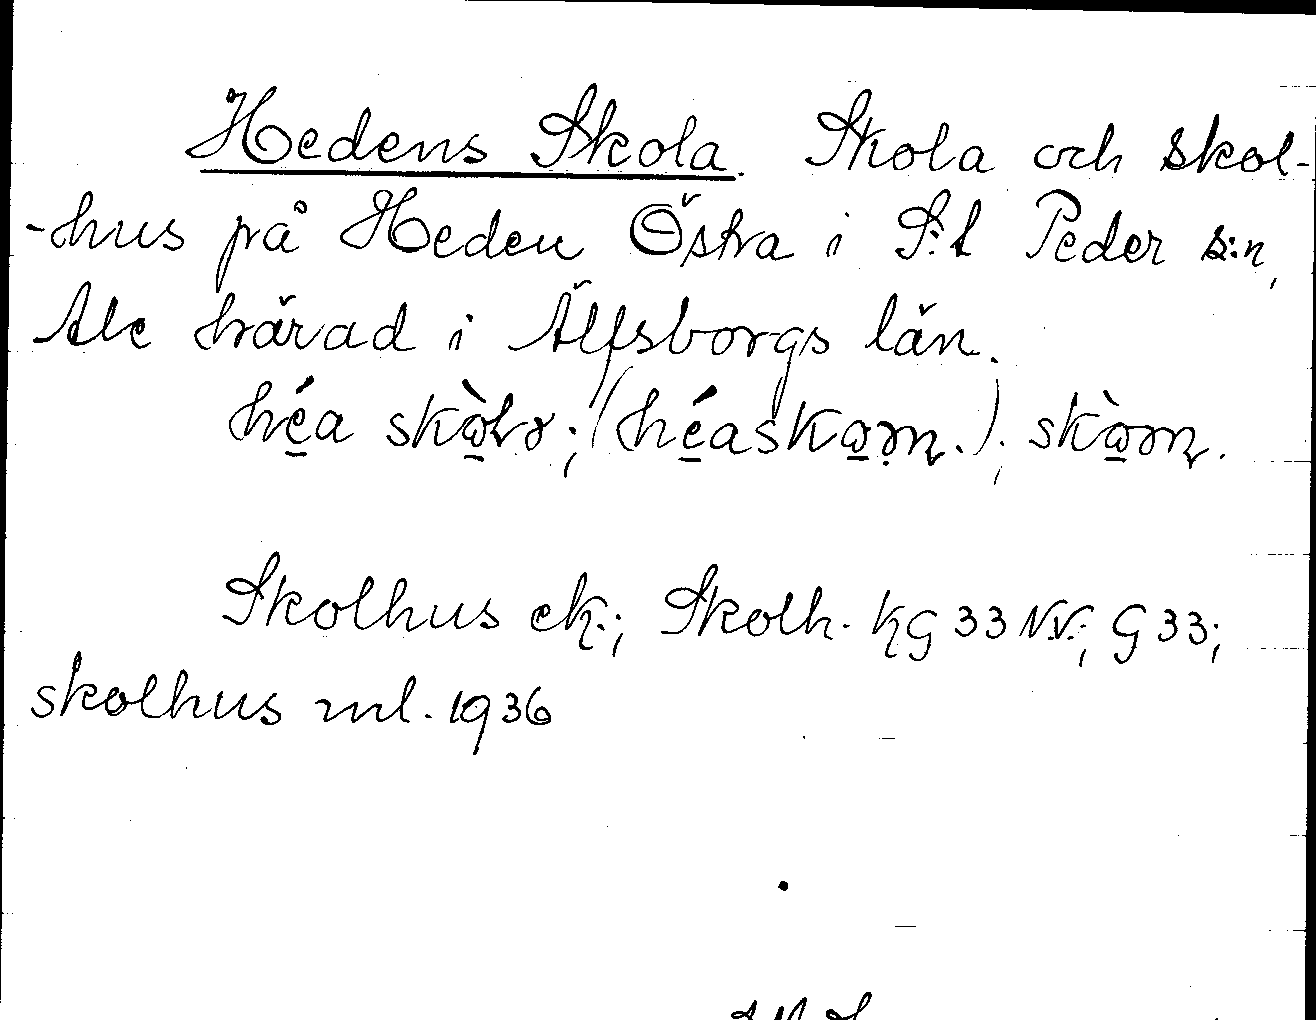 Hedens Skola. Skola och skol-
-hus på Heden Östra i S:t Peder s:n,
Ale härad i Älfsborgs län.
Skolhus ek.; Skolh. kG 33 NV.; G 33;
skolhus ml. 1936